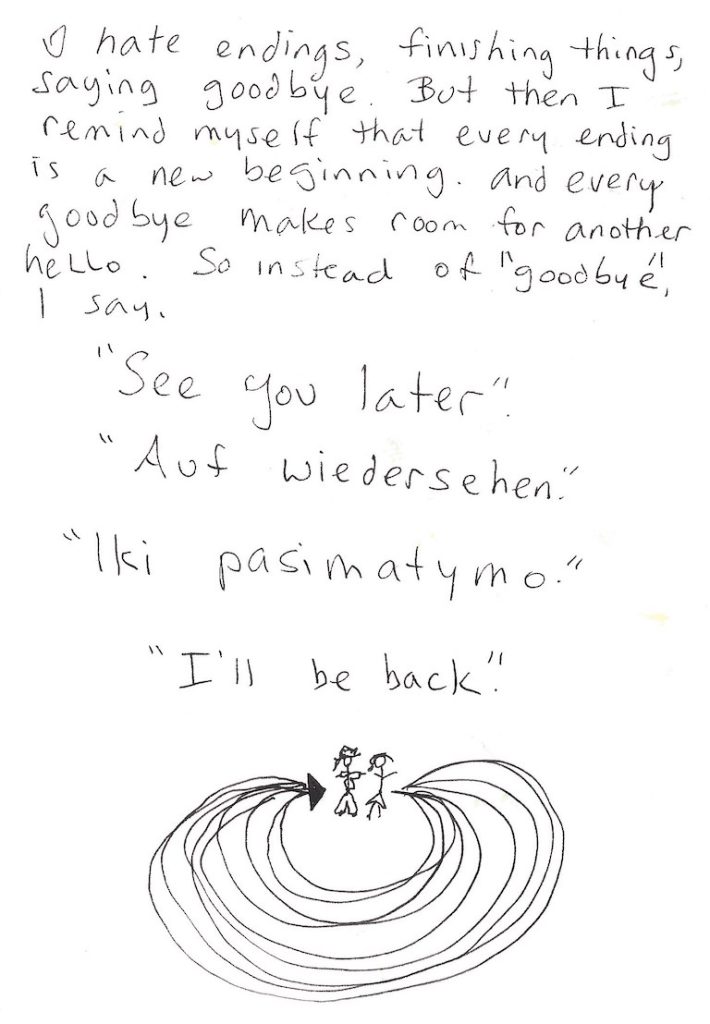 I hate endings, finishing things,
saying goodbye. But then I
remind myself that every ending
is a new beginning. and every
goodbye makes room for another
hello. So instead of "goodbye",
I say.
"See you later".
"Auf wiedersehen."
"Iki pasimatymo."
"I'll be back".